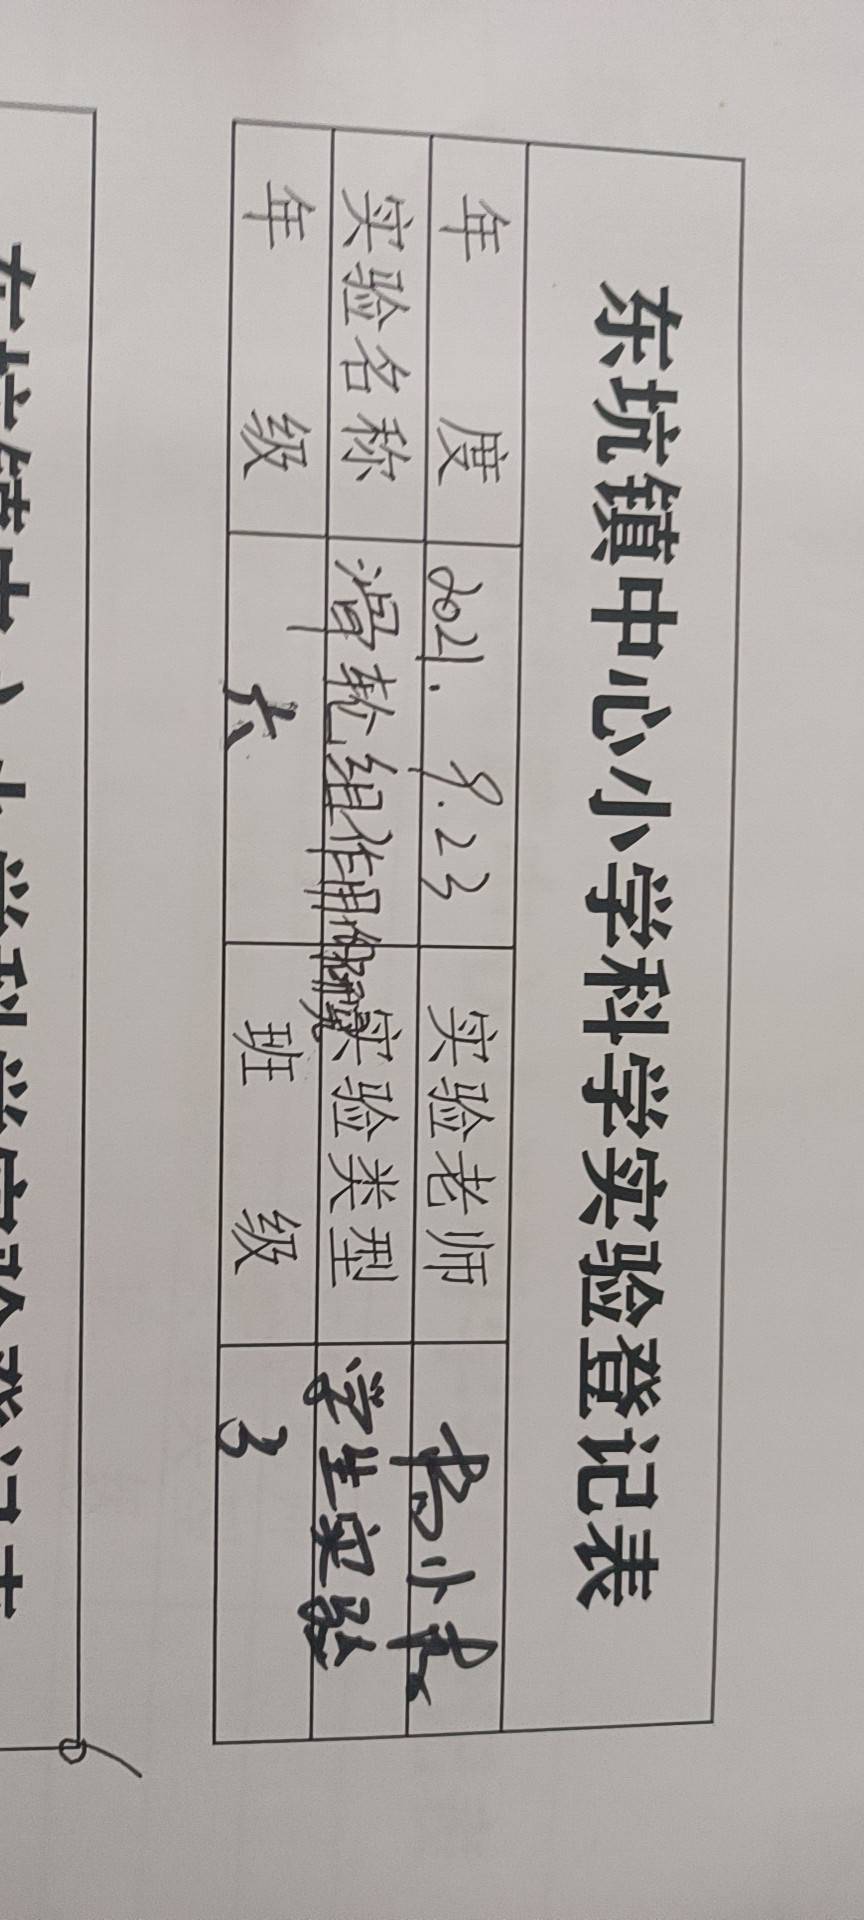 东坑镇中心小学科学实验登记表
年 度 2021. 9.23 实验老师
实验名称 滑轮组作用的探究 实验类型 学生实验
年 级 六 班 级 3
东坑镇中心小学科学实验登记表